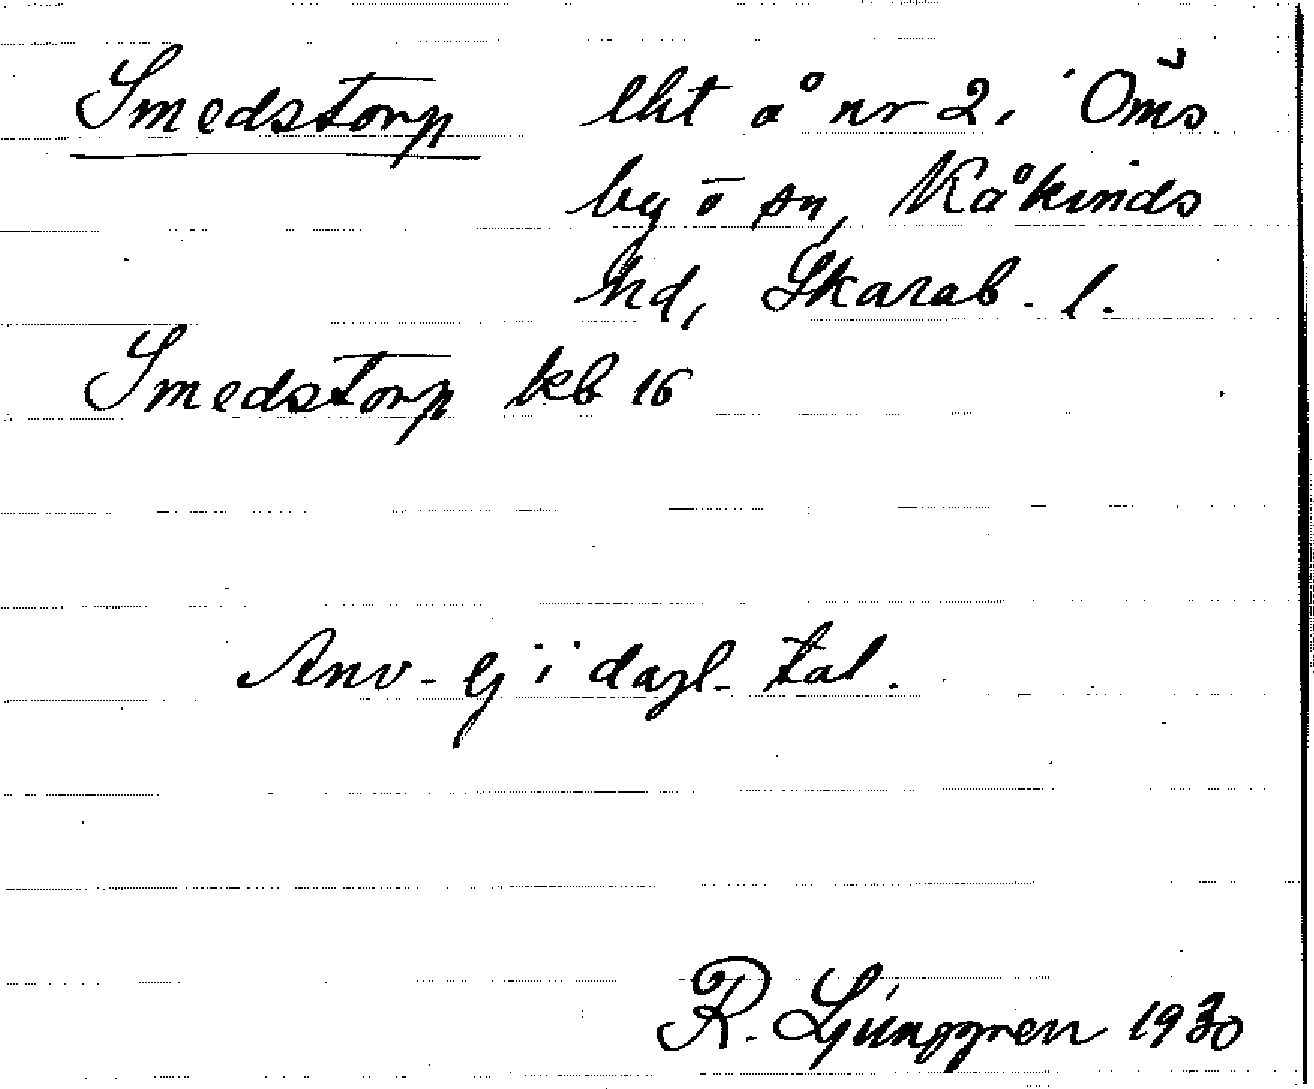 Smedstorp lht å nr 2, Öms
by o sn, Kåkinds
hd, Skarab. l.
Smedstorp kb 16
Anv. ej i dagl. tal.
R. Ljunggren 1930